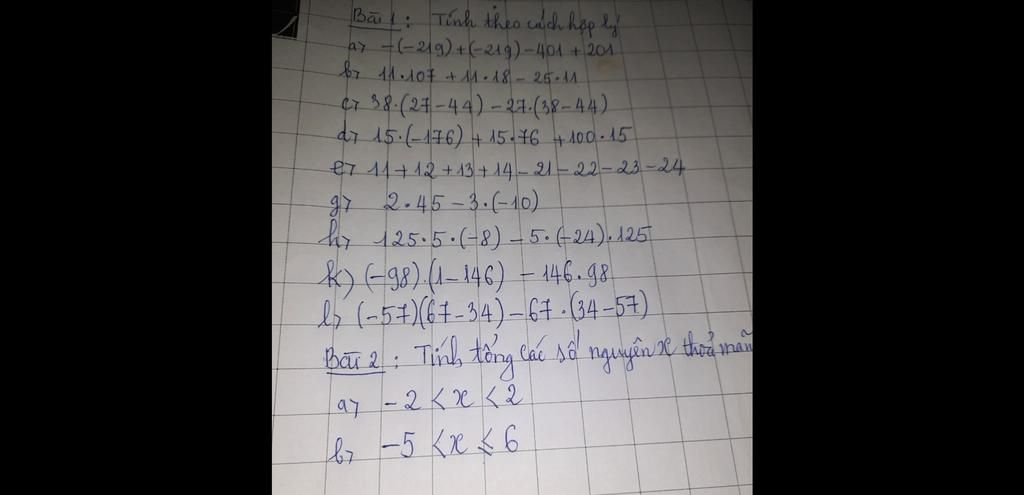 Bài 1 : Tính theo cách hợp lý
a> -(-219)+(-219)-401+201
b> 11.107+11.18-25.11
c> 38.(27-44)-27.(38-44)
d> 15.(-176)+15.76+100.15
e> 11+12+13+14-21-22-23-24
g> 2.45-3.(-10)
h> 125.5.(-8)-5.(-24).125
k) (-98).(1-146)-146.98
l> (-57)(67-34)-67.(34-57)
Bài 2 : Tính tổng các số nguyên x thoả mãn
a> -2 < x < 2
b> -5 < x ≤ 6